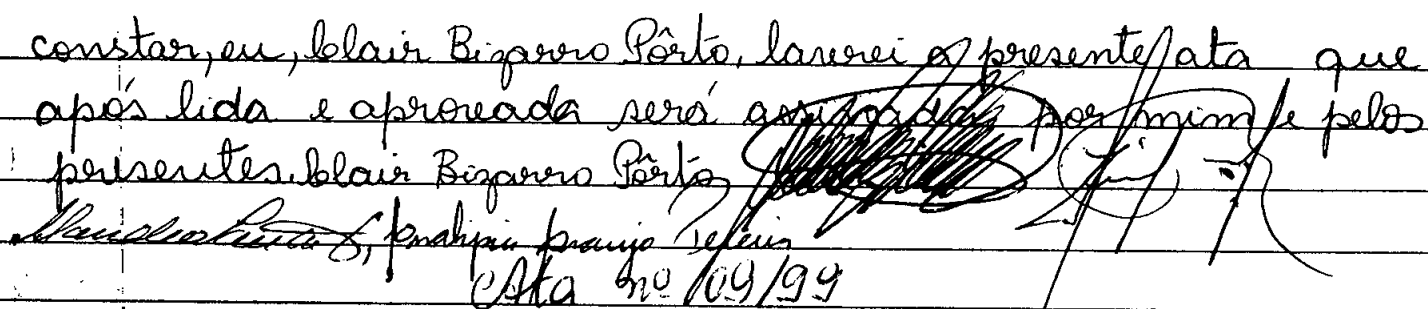 constar, eu, Clair Bizarro Pôrto, lavrei a presente ata que
após lida e aprovada será assinada por mim e pelos
presentes. Clair Bizarro Pôrto
Ata nº 09/99